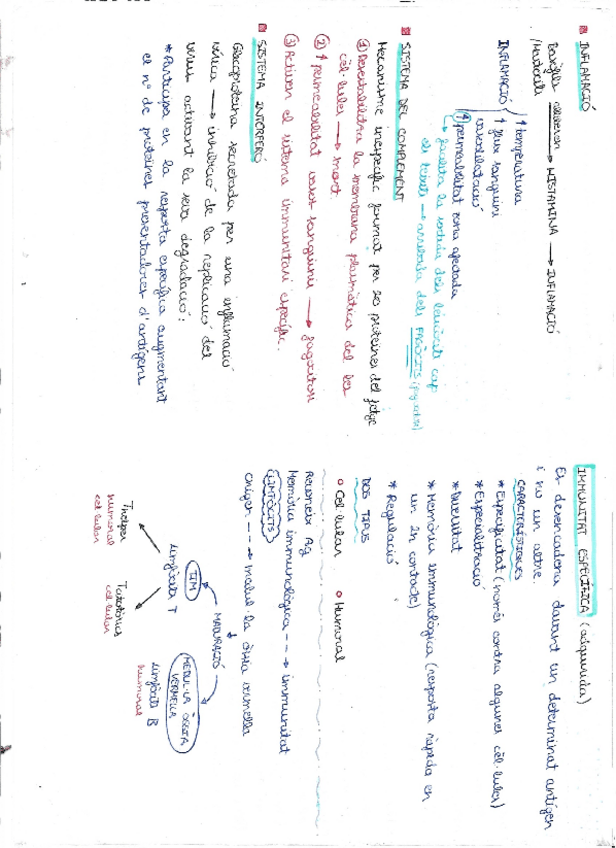 INFLAMACIÓ
Basòfils alliberen → HISTAMINA → INFLAMACIÓ
/Mastòcits
INFLAMACIÓ
↑ temperatura
↑ flux sanguini
vasodilatació
↑ permeabilitat zona afectada
↳ facilita la sortida dels leucòcits cap
als teixits → arribada dels FAGÒCITS
SISTEMA DEL COMPLEMENT
Mecanisme inespecífic format per 30 proteïnes del fetge
① la membrana plasmàtica de les
cèl·lules → mort.
② ↑ permeabilitat vasos sanguinis → fagocitosi
③ Activen el sistema immunitari específic.
SISTEMA INTERFERÓ
Glicoproteïna secretada per una
vírica → inhibició de la replicació del
virus activant la seva degradació:
* Participa en la resposta específica augmentant
el nº de proteïnes presentadores d'antígens
IMMUNITAT ESPECÍFICA (adquirida)
Es desencadena davant un determinat antigen
i no un altre.
CARACTERÍSTIQUES
* Especificitat (només contra algunes cèl·lules)
* Especialització
* Diversitat
* Memòria immunològica (resposta ràpida en
un 2n contacte)
* Regulació
DOS TIPUS
○ Cel·lular ○ Humoral
Reconeix Ag
Memòria immunològica --→ immunitat
LIMFÒCITS
Origen --→ medul·la òssia vermella
MADURACIÓ
TIM
MEDUL·LA ÒSSIA
VERMELLA
Limfòcits T
Limfòcits B
humoral
T helper
humoral
cel·lular
T citotòxics
cel·lular